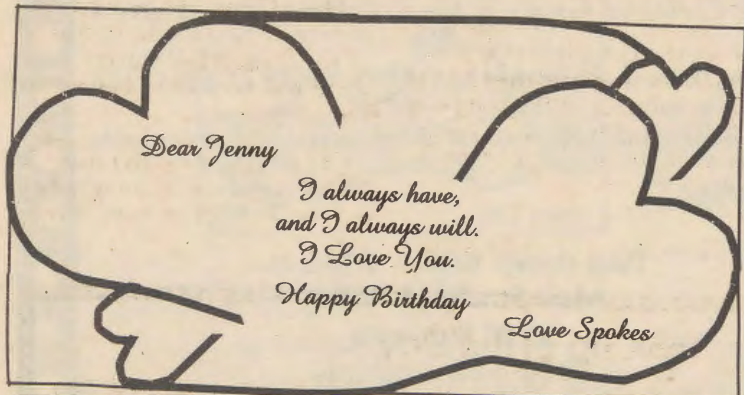 Dear Jenny
I always have,
and I always will.
I Love You.
Happy Birthday
Love Spokes